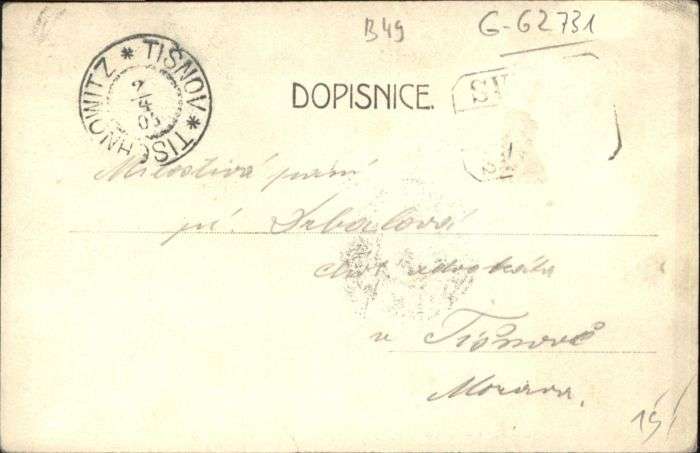 B49
G-G2731
TIŠNOV * TISCHNOWITZ *
2/4
03
DOPISNICE.
Milostivá paní
pí. Drbalová
choť advokáta
v Tišnově
Morava.